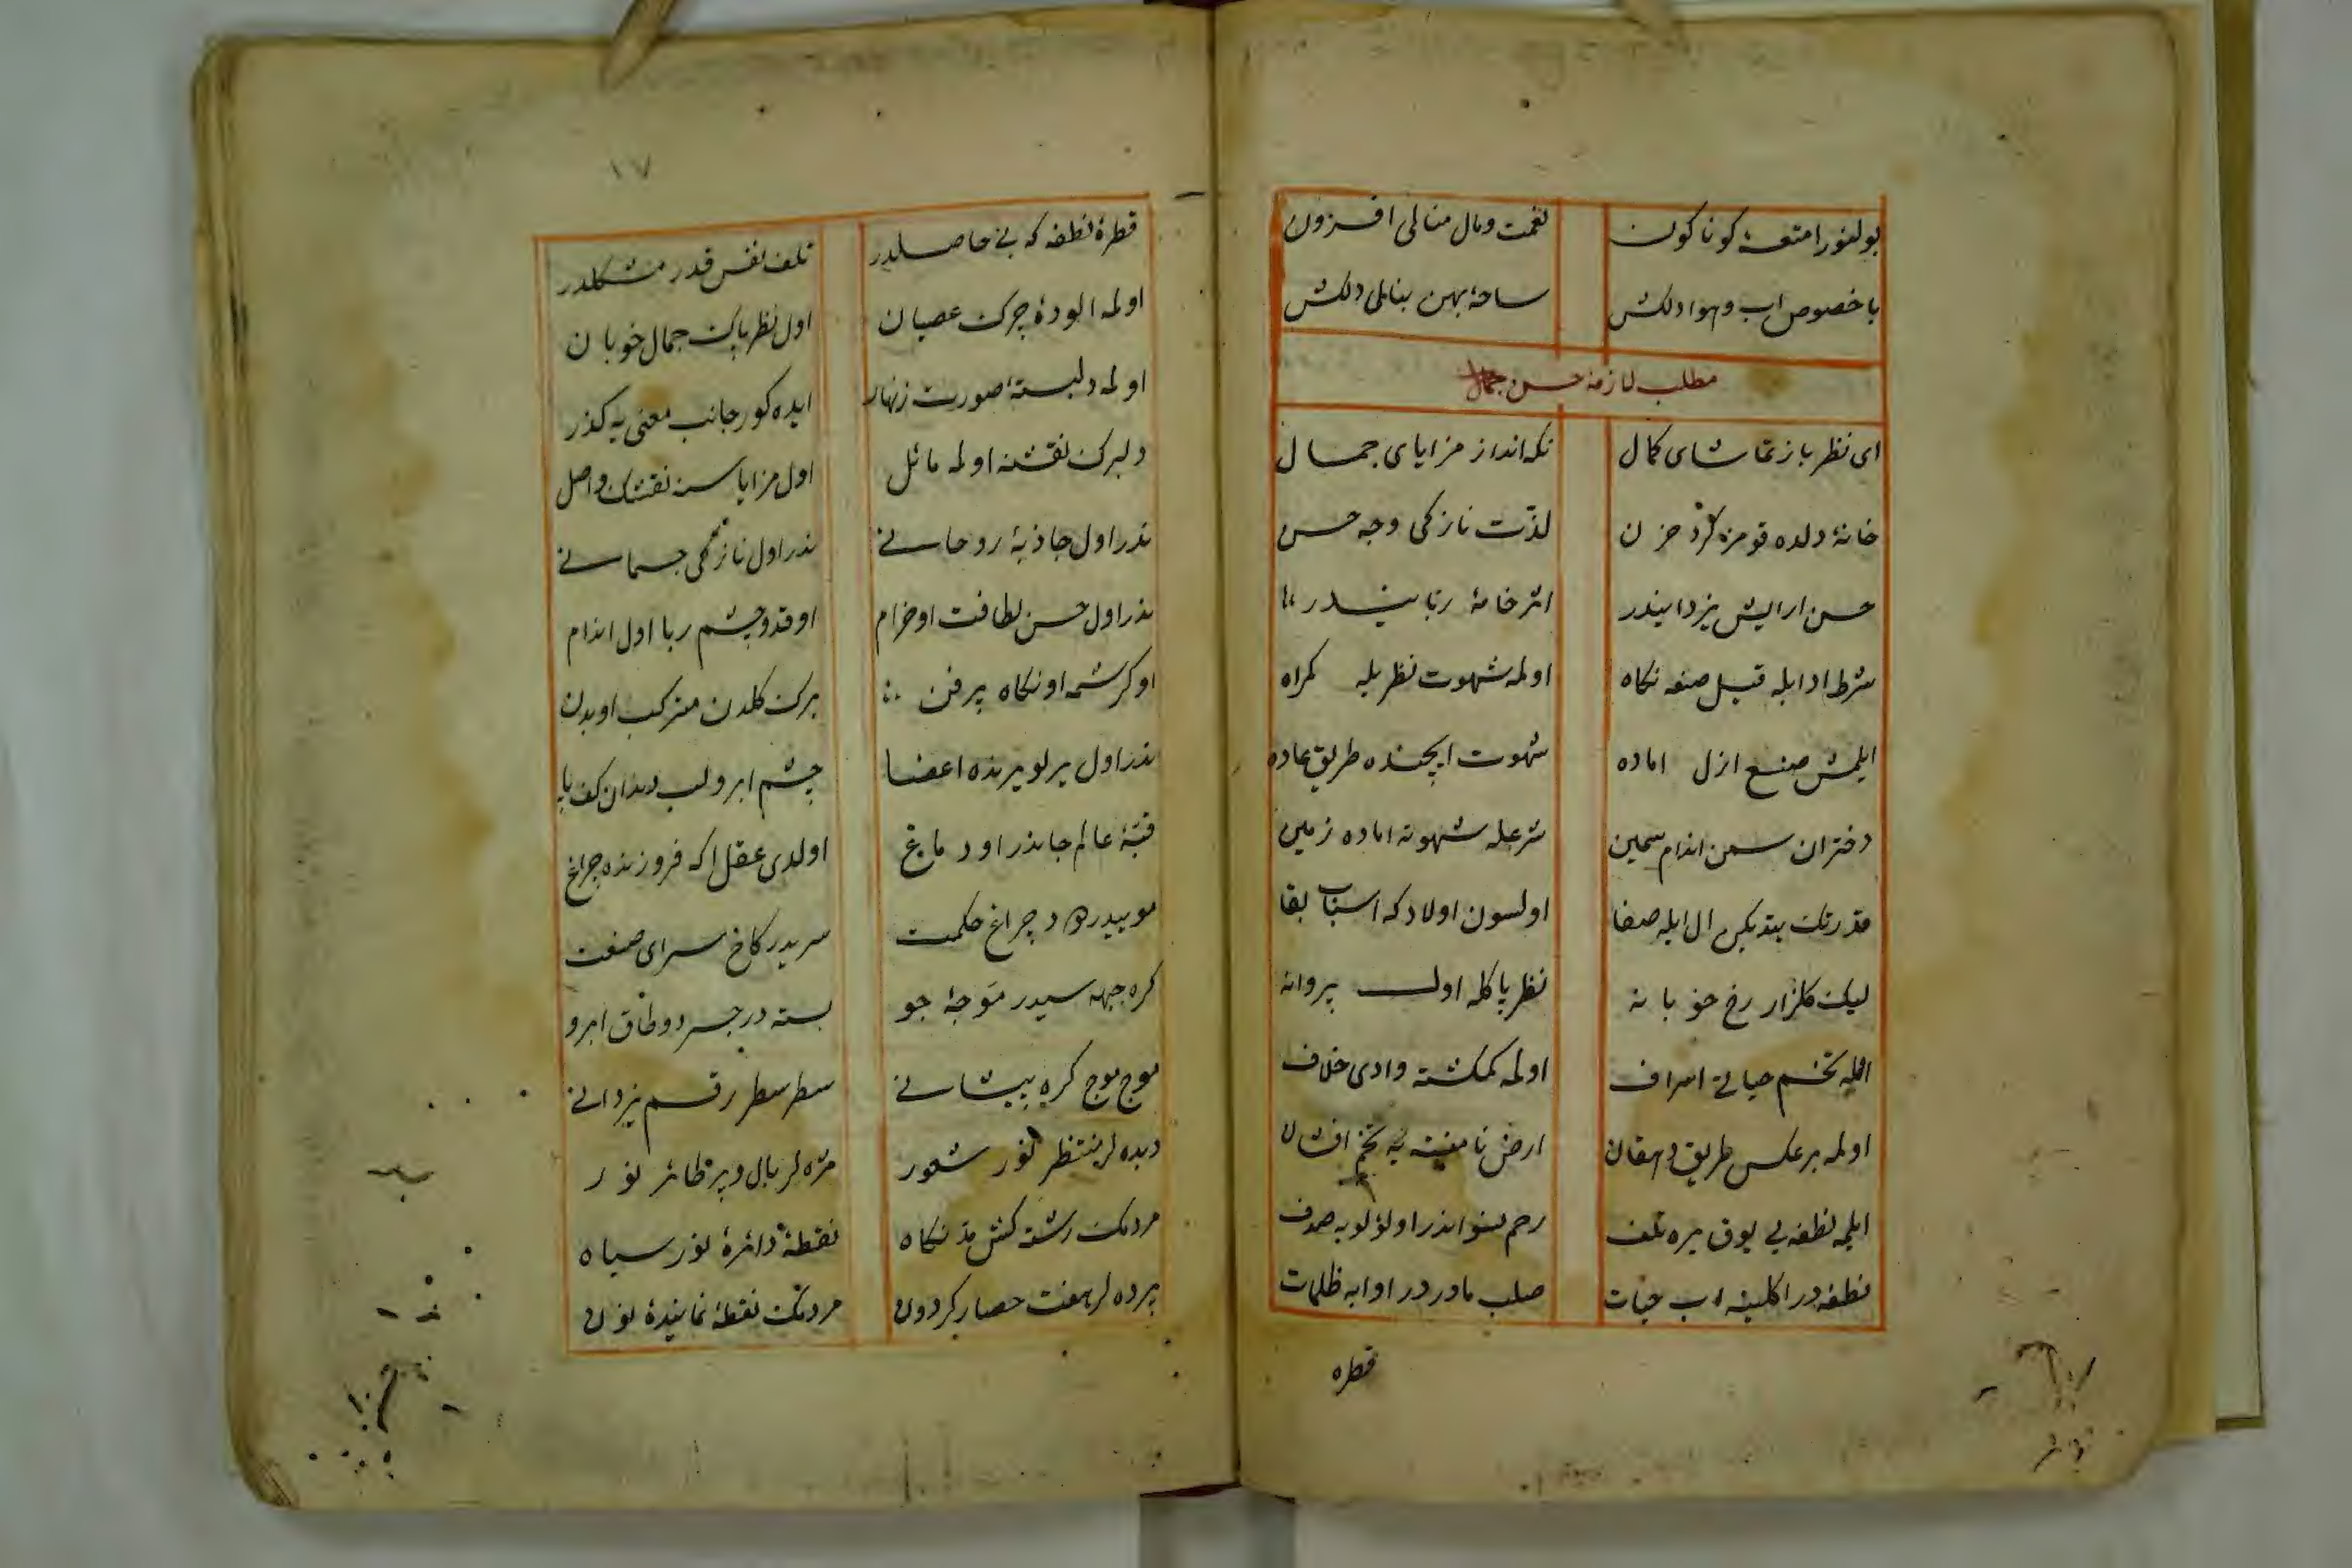 بولنور امتعهٔ كوناكون
نعمت ومال منالى افزون
باخصوص اب وهوا دلكش
ساحهٔ پهن بنالى دلكش
مطلب لازمهٔ حسن جمال
اى نظر باز تماشاى كمال
نكه انداز مزاياى جمال
خانهٔ دلده قومز كرد حزن
لذّت نازكى وجه حسن
حسن ارايش يزدانيدر
اثر خامهٔ ربانيدر
شرط ادايله قيل صنعه نكاه
اولمه شهوت نظريله كمراه
ايلمش صنع ازل اماده
شهوت ايچنده طريق عاده
دختران سمن اندام سمين
شرعله شهوته اماده زمين
قدرتك يتديكى ال ايله صفا
اولسون اولادكه اسباب بقا
ليك كلزار رخ خوبانه
نظر پاكله اول پروانه
ايلمه تخم حياتى اسراف
اولمه كمكشته وادى خلاف
اولمه برعكس طريق دهقان
ارض نامنبته يه تخم افشان
ايلمه نطفه يى يوق يره تلف
رحم نسواندر او لؤلويه صدف
نطفه در اكلينه اب حيات
صلب مادردر او ابه ظلمات
قطره
١٧
قطرهٔ نطفه كه بى حاصلدر
تلف نفس قدر مشكلدر
اولمه الودهٔ چرك عصيان
اول نظر پاك جمال خوبان
اولمه دلبستهٔ صورت زنهار
ايده كور جانب معنى يه كذر
دلبرك نقشنه اولمه مائل
اول مزاياسنه نقشك واصل
ندر اول جاذبهٔ روحانى
ندر اول نازكى جسمانى
ندر اول حسن لطافت او خرام
او قد وچشم ربا اول اندام
او كرشمه او نكاه پرفن
برك كلدن متركب او بدن
ندر اول يرلو يرنده اعضا
چشم ابرو لب دندان كف پا
قبّهٔ عالم جاندر او دماغ
اولدى عقل اكه فروزنده چراغ
موييدر دود چراغ حكمت
سريدر كاخ سراى صنعت
كره جبهه سيدر موجهٔ جو
بسته در جسر دو طاق ابرو
موج موج كره پيشانى
سطر سطر رقم يزدانى
ديده لر منتظر نور شعور
مژه لر بال وپر طائر نور
مردمك رشته كش مدّ نكاه
نقطهٔ دائرهٔ نور سياه
پرده لر هفت حصار كردون
مردمك نقطهٔ نمايندهٔ نون